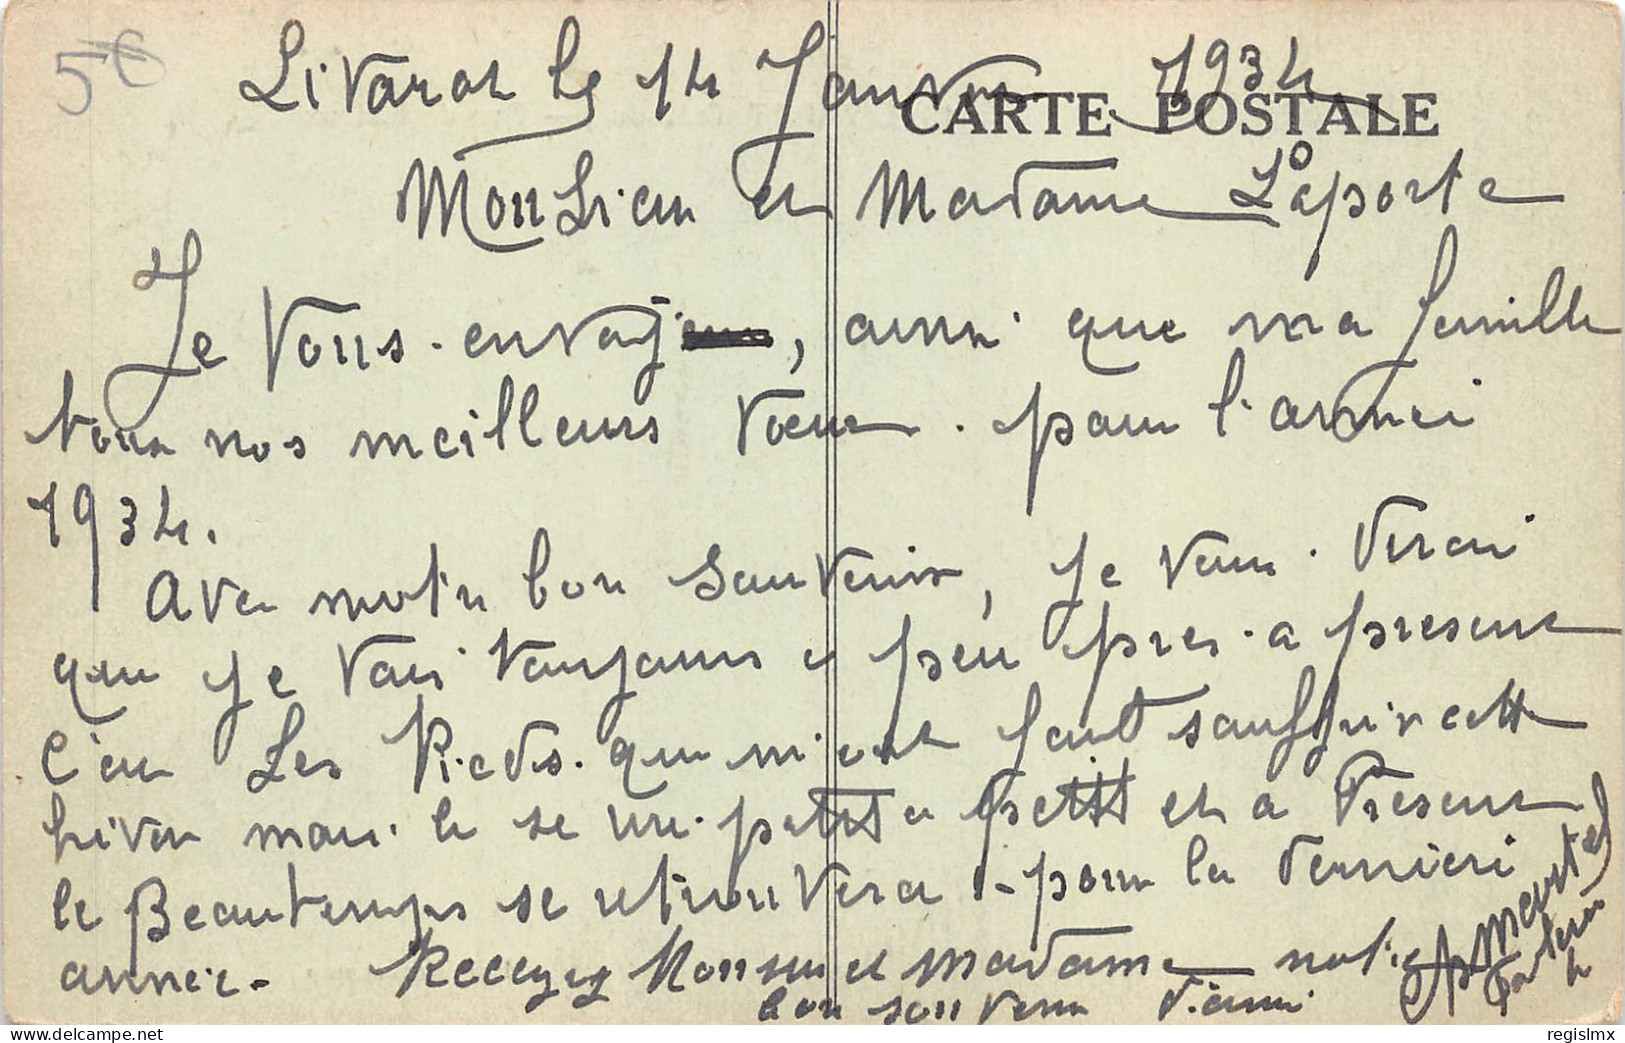 5€
Livarot le 14 Janvier 1934
CARTE POSTALE
Monsieur et Madame Laporte
Je vous envoy, ainsi que ma famille
tous nos meilleurs vœux pour l'année
1934.
Avec notre bon souvenir, Je vous dirai
que Je vais toujours a peu pres a present
c'est Les Pieds que m'ont fait souffrir cette
hiver mais le se petit a petit et a Present
le Beautemps se retrouvera pour la derniere
année. Recevez Monsieur et madame notre
bon souvenir d'ami
regislmx